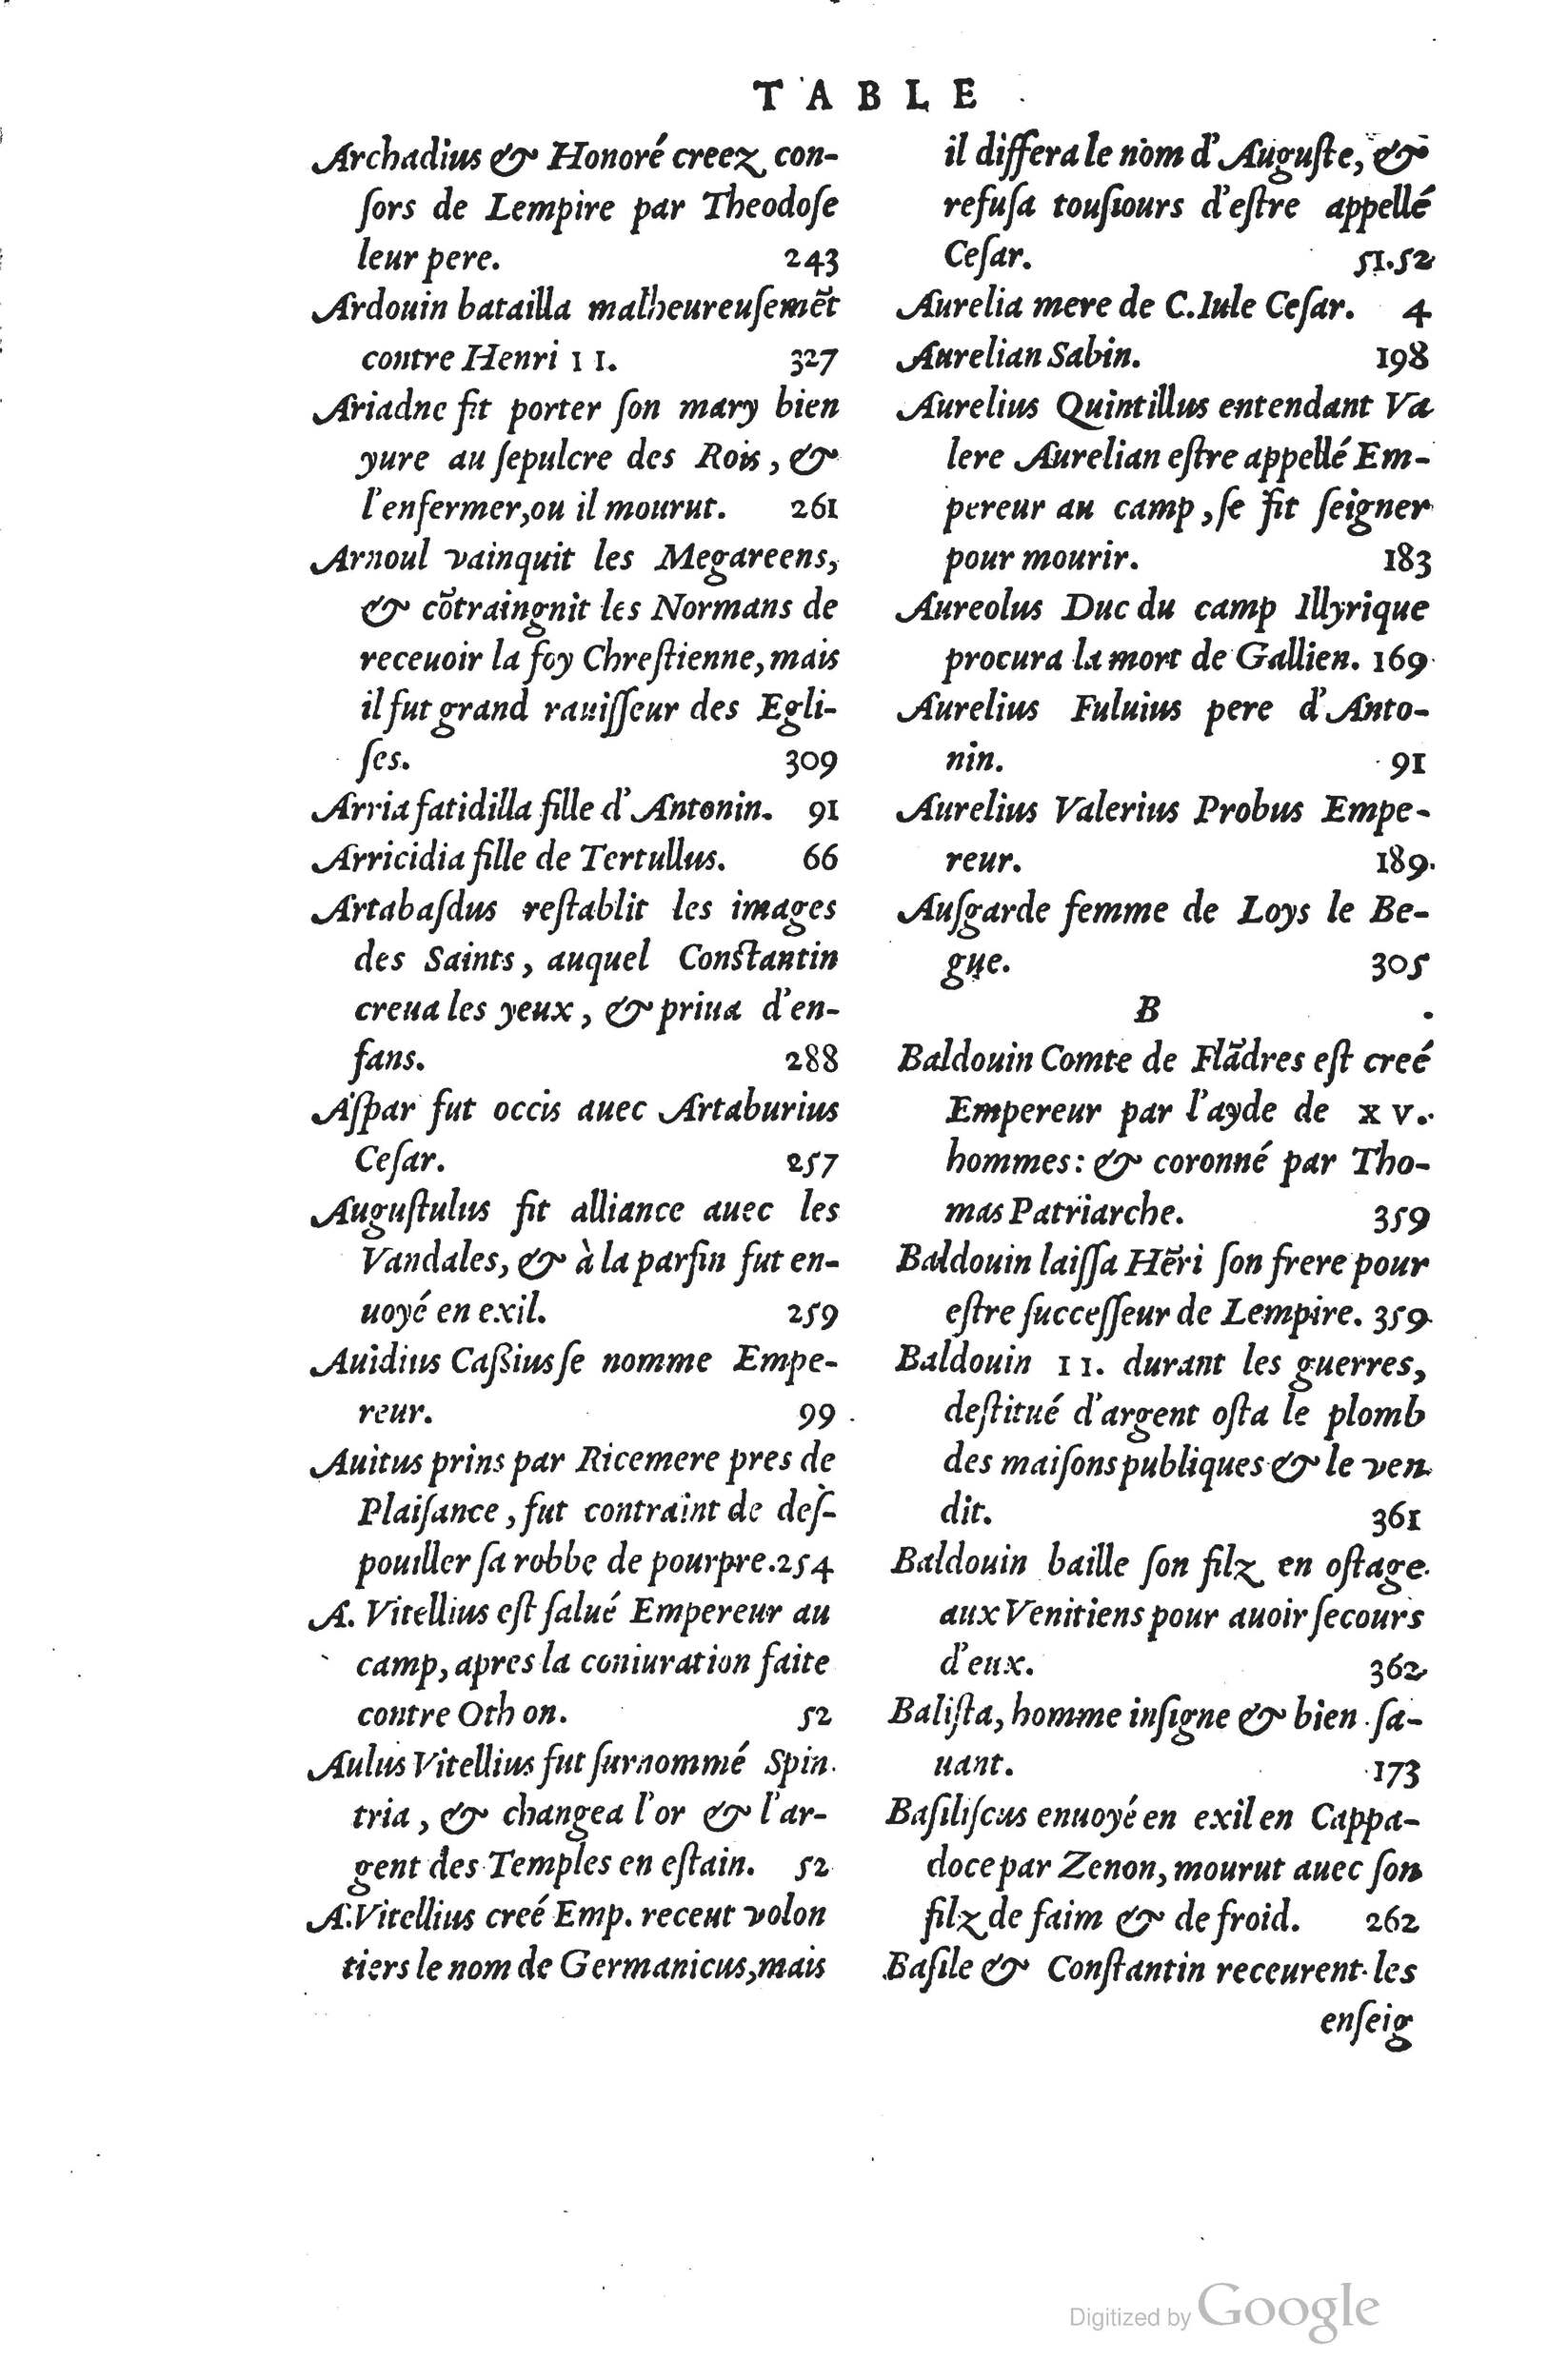 TABLE
Archadius & Honoré creez con-
ſors de Lempire par Theodoſe
leur pere. 243
Ardouin batailla malheureuſemẽt
contre Henri II. 327
Ariadne fit porter ſon mary bien
yure au ſepulcre des Rois, &
l'enfermer,ou il mourut. 261
Arnoul vainquit les Megareens,
& cõtraingnit les Normans de
receuoir la foy Chreſtienne, mais
il fut grand rauiſſeur des Egli-
ſes. 309
Arria fatidilla fille d'Antonin. 91
Arricidia fille de Tertullus. 66
Artabaſdus reſtablit les images
des Saints, auquel Conſtantin
creua les yeux, & priua d'en-
fans. 288
Aſpar fut occis auec Artaburius
Ceſar. 257
Auguſtulus fit alliance auec les
Vandales, & à la parfin fut en-
uoyé en exil. 259
Auidius Caßius ſe nomme Empe-
reur. 99
Auitus prins par Ricemere pres de
Plaiſance, fut contraint de deſ-
pouiller ſa robbe de pourpre. 254
A. Vitellius eſt ſalué Empereur au
camp, apres la coniuration faite
contre Oth on. 52
Aulus Vitellius fut ſurnommé Spin
tria, & changea l'or & l'ar-
gent des Temples en eſtain. 52
A.Vitellius creé Emp. receut volon
tiers le nom de Germanicus,mais
il differa le nom d'Auguſte, &
refuſa touſiours d'eſtre appellé
Ceſar. 51.52
Aurelia mere de C.Iule Ceſar. 4
Aurelian Sabin. 198
Aurelius Quintillus entendant Va
lere Aurelian eſtre appellé Em-
pereur au camp, ſe fit ſeigner
pour mourir. 183
Aureolus Duc du camp Illyrique
procura la mort de Gallien. 169
Aurelius Fuluius pere d'Anto-
nin. 91
Aurelius Valerius Probus Empe-
reur. 189.
Auſgarde femme de Loys le Be-
gue. 305
B
Baldouin Comte de Flãdres eſt creé
Empereur par l'ayde de XV.
hommes: & coronné par Tho-
mas Patriarche. 359
Baldouin laiſſa Hẽri ſon frere pour
eſtre ſucceſſeur de Lempire. 359
Baldouin II. durant les guerres,
deſtitué d'argent oſta le plomb
des maiſons publiques & le ven
dit. 361
Baldouin baille ſon filz en oſtage
aux Venitiens pour auoir ſecours
d'eux. 362
Baliſta, homme inſigne & bien ſa-
uant. 173
Baſiliſcus enuoyé en exil en Cappa-
doce par Zenon, mourut auec ſon
filz de faim & de froid. 262
Baſile & Conſtantin receurent les
enſeig
Digitized by Google